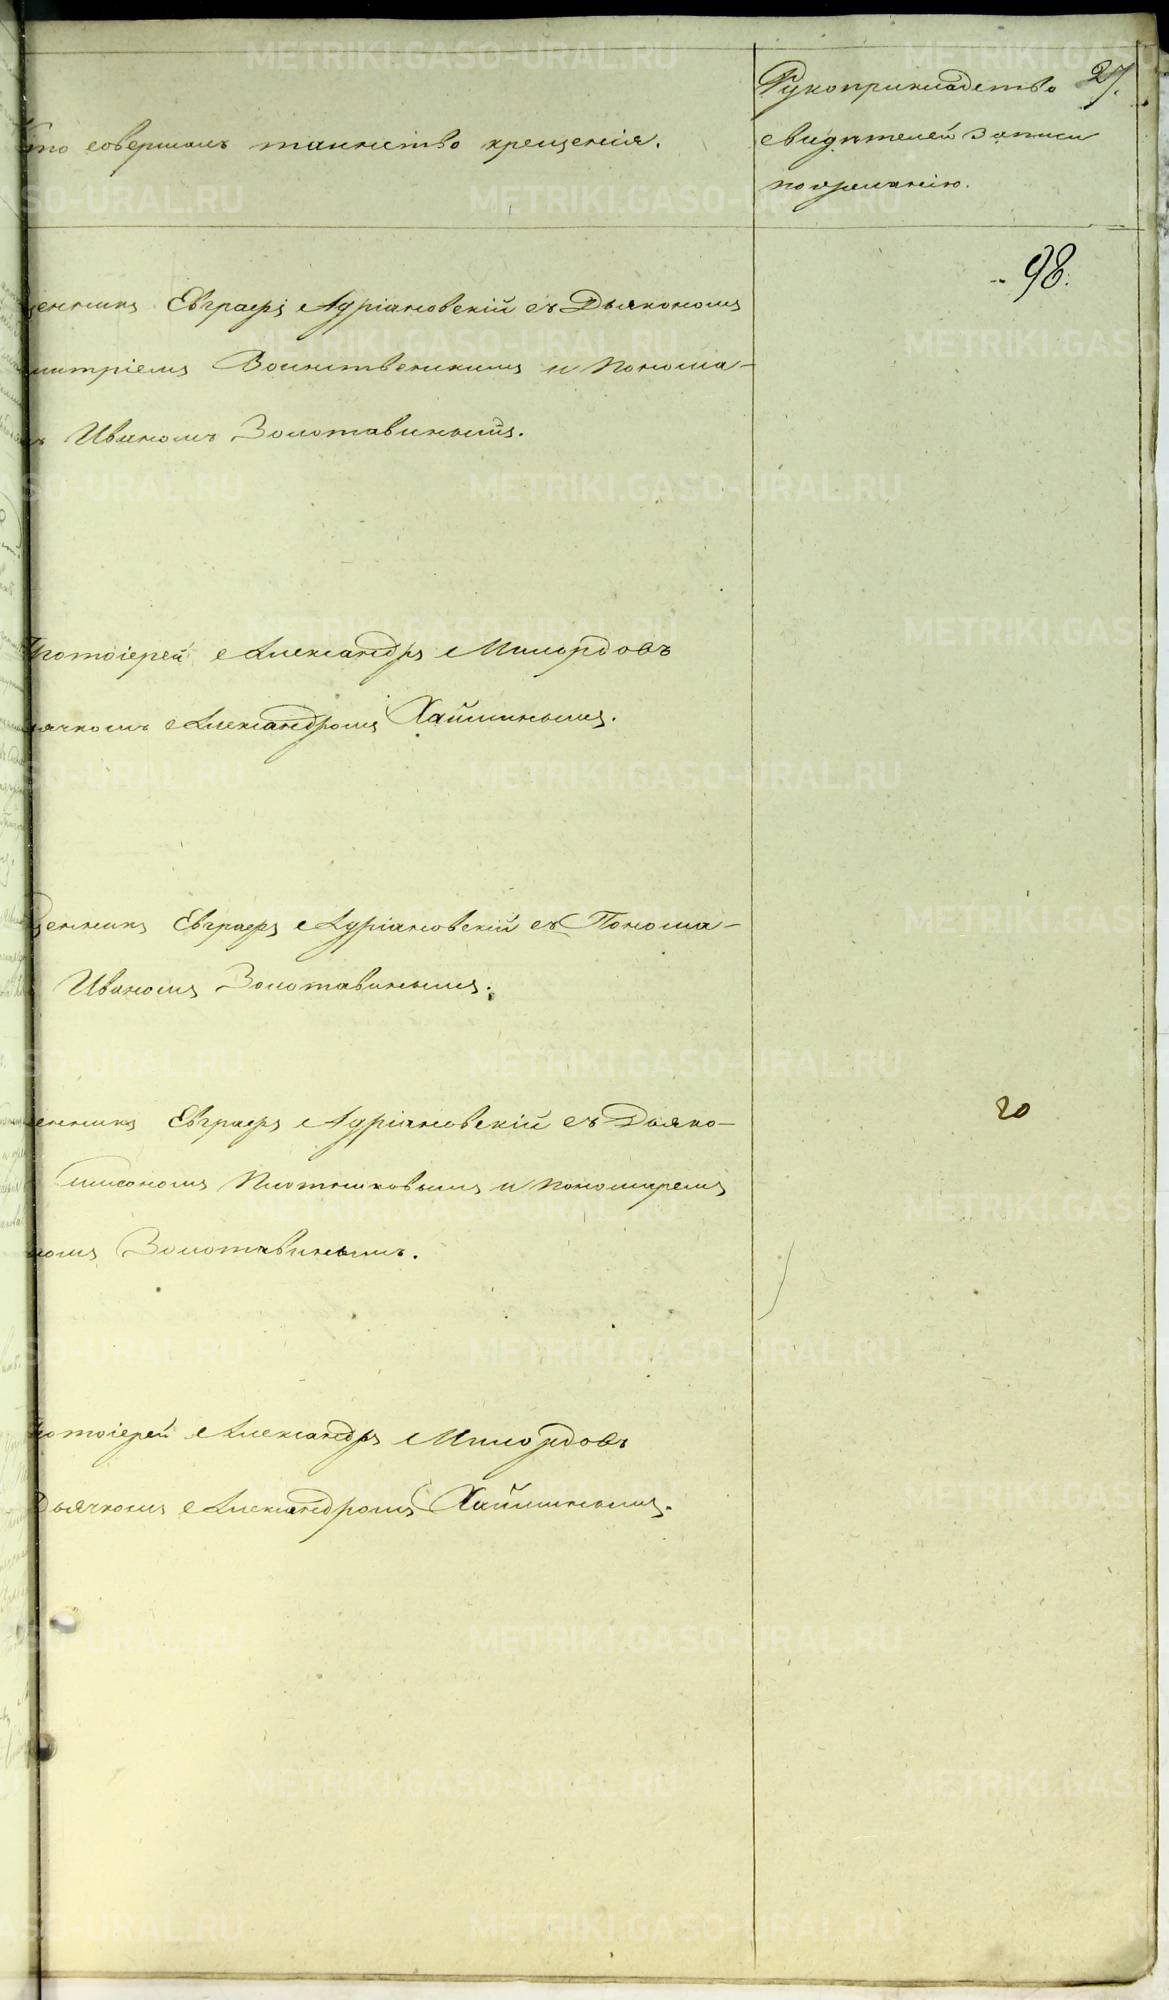 то совершалъ таинство крещенія.
Рукоприкладство 27.
свидѣтелей записи
по желанію.
98.
щенникъ Евграфъ Адріановскій съ Дьякономъ
митріемъ Воинственскимъ и Понома-
Иваномъ Золотавинымъ.
ротоіерей Александръ Милордовъ
ячкомъ Александромъ Хайминымъ.
щенникъ Евграфъ Адріановскій съ Понома-
Иваномъ Золотавинымъ.
енникъ Евграфъ Адріановскій съ Дьяко-
20
Плотниковымъ и пономаремъ
номъ Золотавинымъ.
отоіерей Александръ Милордовъ
Дьячкомъ Александромъ Хайминымъ.
METRIKI.GASO-URAL.RU